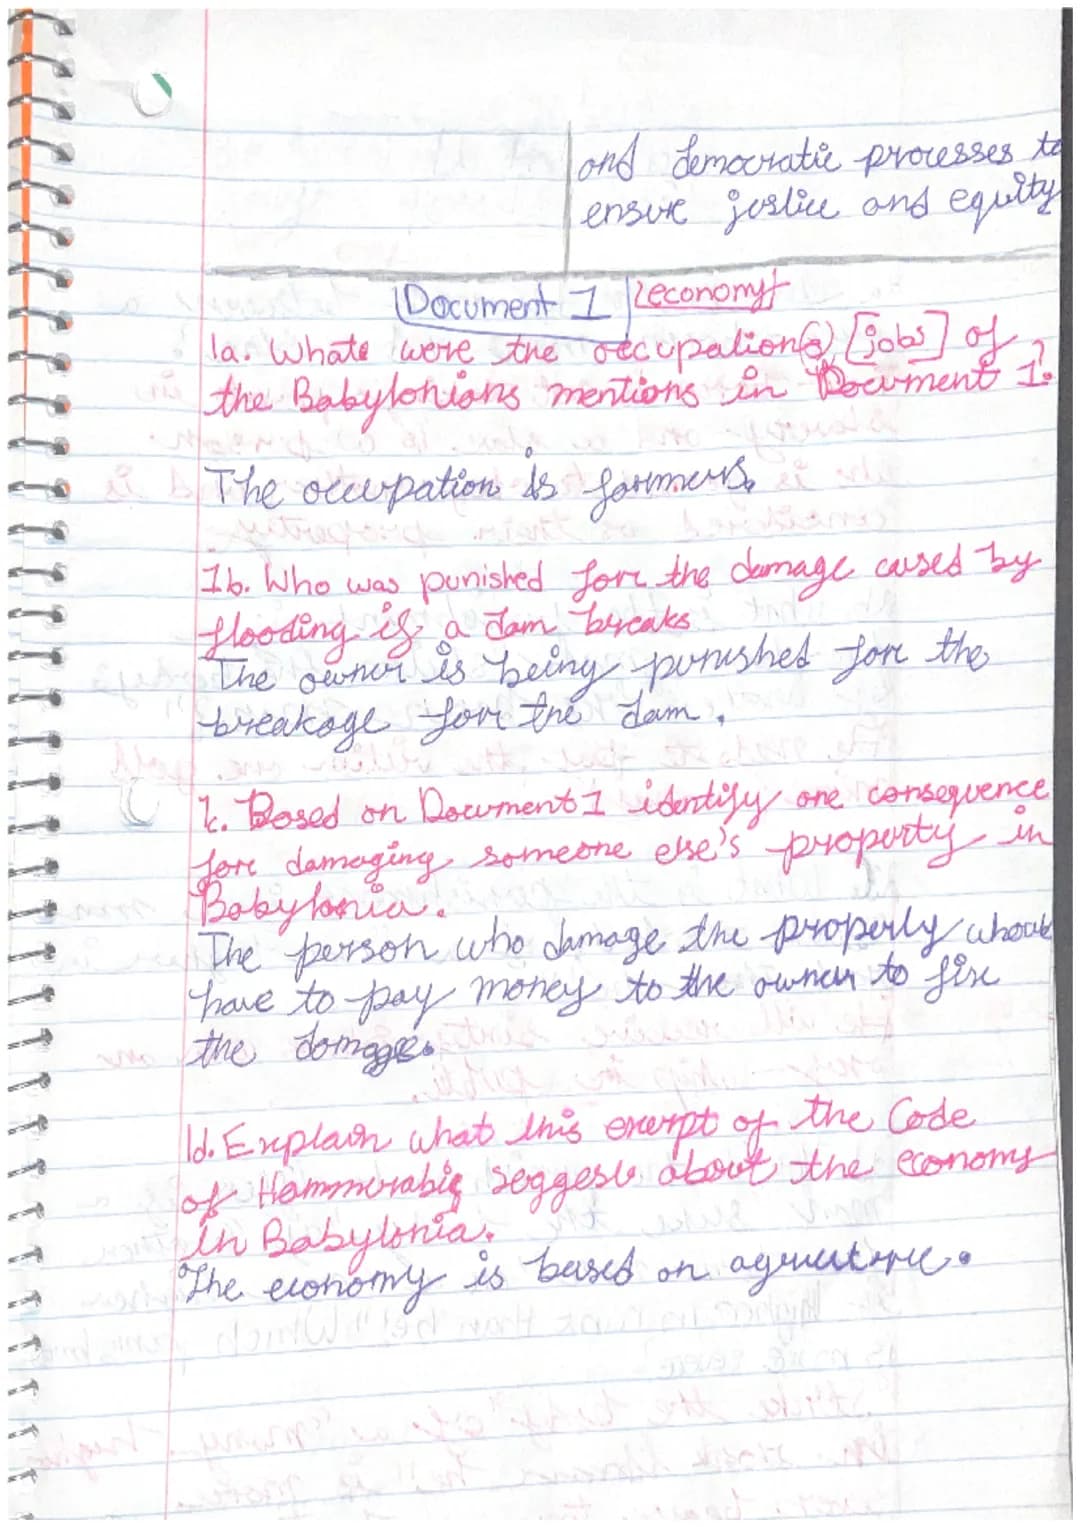 and democratic processes to
ensure justice and equity
Document 1 economy
1a. Whats were the occupation(s) [jobs] of
the Babylonians mentions in Document 1?
The occupation is farmers.
1b. Who was punished for the damage caused by
flooding if a dam breaks
The owner is being punished for the
breakage for the dam.
1c. Based on Document 1 identify one consequence
for damaging someone else's property in
Babylonia.
The person who damage the property would
have to pay money to the owner to fix
the damage.
1d. Explain what this exerpt of the Code
of Hammurabi suggest about the economy
in Babylonia.
The economy is based on agriculture.